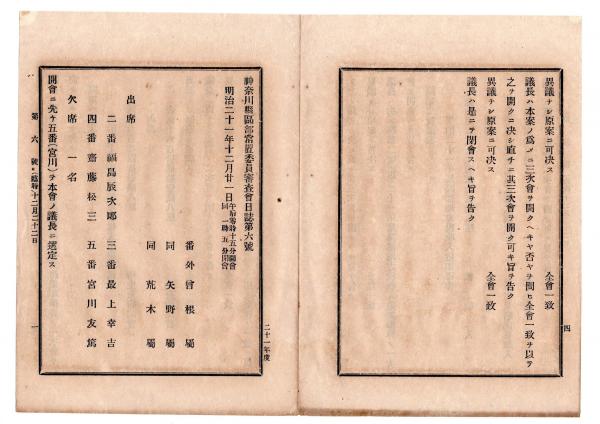 異議ナシ原案ニ可決ス　全會一致
議長ハ本案ノ爲メニ三次會ヲ開クヘキヤ否ヤヲ問ヒ全會一致ヲ以テ
之ヲ開クニ決シ直チニ其三次會ヲ開ク可キ旨ヲ告ク
異議ナシ原案ニ可決ス　全會一致
議長ハ是ニテ閉會スヘキ旨ヲ告ク
四
二十一年度
神奈川縣區部常置委員審査會日誌第六號
明治二十一年十二月廿一日午后零時十五分開會同一時五分閉會
番外曾根屬
同矢野屬
同荒木屬
出席
二番福島辰次郎　三番最上幸吉
四番齋藤松三　五番宮川友篤
欠席　一名
開會ニ先ケ五番(宮川)ヲ本會ノ議長ニ選定ス
第六號・臨時十二月二十二日
一